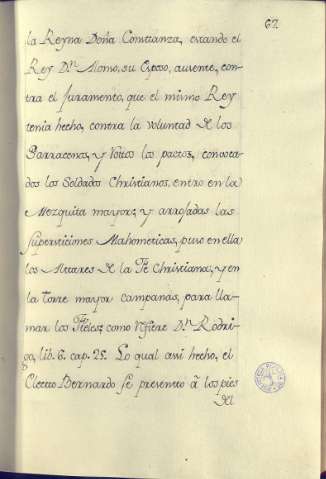 62
la Reyna Doña Constanza, estando el
Rey D.ⁿ Alonso, su Esposo, ausente, con-
tra el juramento, que el mismo Rey
tenia hecho, contra la voluntad de los
Sarracenos, y rotos los pactos, convoca-
dos los Soldados Christianos, entro en la
Mezquita mayor; y arrojadas las
supersticiones Mahometicas, puso en ella
los Altares de la Fè Christiana, y en
la torre mayor campanas, para lla-
mar los Fieles; como refiere D.ⁿ Rodri-
go, lib. 6. cap. 25. Lo qual assi hecho, el
Electo Bernardo se presentó à los pies
del